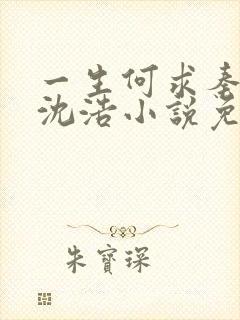 一生何求
沈浩小說免
朱寶琛